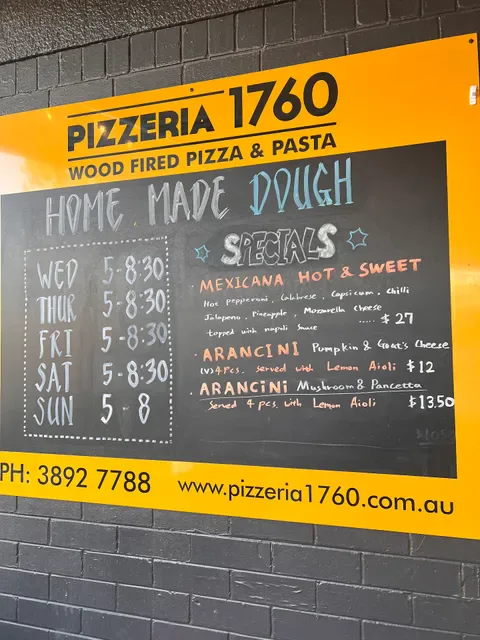 PIZZERIA 1760
WOOD FIRED PIZZA & PASTA
HOME MADE DOUGH
WED 5-8:30
THUR 5-8:30
FRI 5-8:30
SAT 5-8:30
SUN 5-8
SPECIALS
MEXICANA HOT & SWEET
Hot pepperoni, Calabrese, Capsicum, Chilli
Jalapeno, Pineapple, Mozzarella Cheese
topped with napoli Sauce ..... $27
ARANCINI Pumpkin & Goat's Cheese
(V) 4 Pcs. Served with Lemon Aioli $12
ARANCINI Mushroom & Pancetta
Served 4 pcs. with Lemon Aioli $13.50
PH: 3892 7788
www.pizzeria1760.com.au